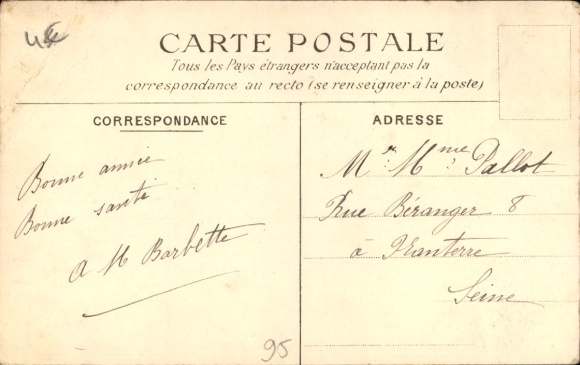 4€
CARTE POSTALE
Tous les Pays étrangers n'acceptant pas la
correspondance au recto (se renseigner à la poste)
CORRESPONDANCE
Bonne année
Bonne santé
A M Barbette
95
ADRESSE
Mr. Mme. Pallot
Rue Béranger 8
à Nanterre
Seine